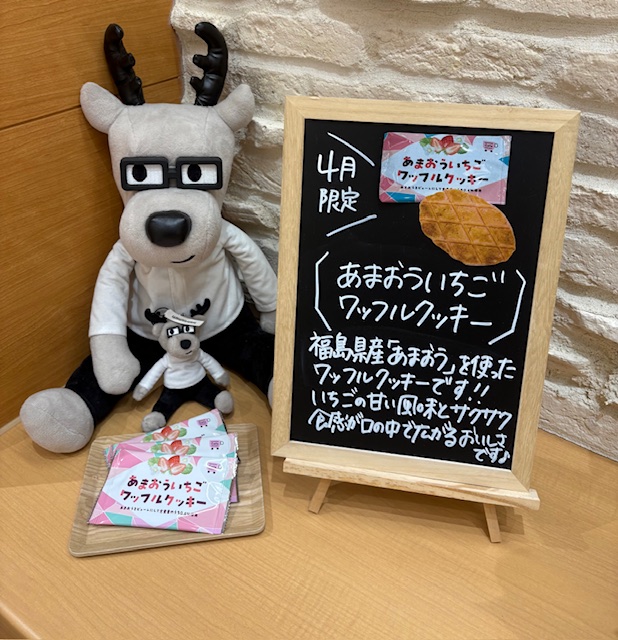 4月
限定
あまおういちご
ワッフルクッキー
あまおういちご
ワッフルクッキー
福島県産「あまおう」を使った
ワッフルクッキーです!!
いちごの甘い風味とサクサク
食感が口の中で広がるおいしさ
です♪
あまおういちご
ワッフルクッキー